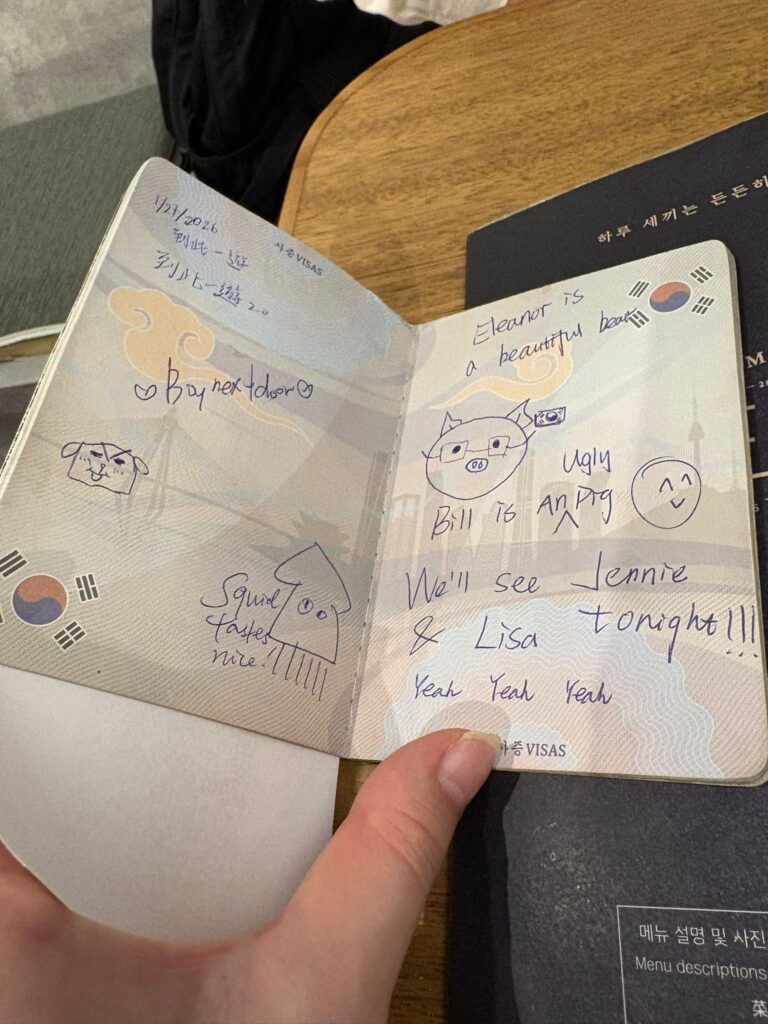 1/27/2026
到此一遊
到此一遊 2.0
사증 VISAS
Boynextdoor
Squid
tastes
nice!
Eleanor is
a beautiful bear
Ugly
Bill is An Pig
We'll see Jennie
& Lisa tonight!!!
Yeah Yeah Yeah
사증 VISAS
하루 세끼는 든든하
M
메뉴 설명 및 사진
Menu descriptions
菜